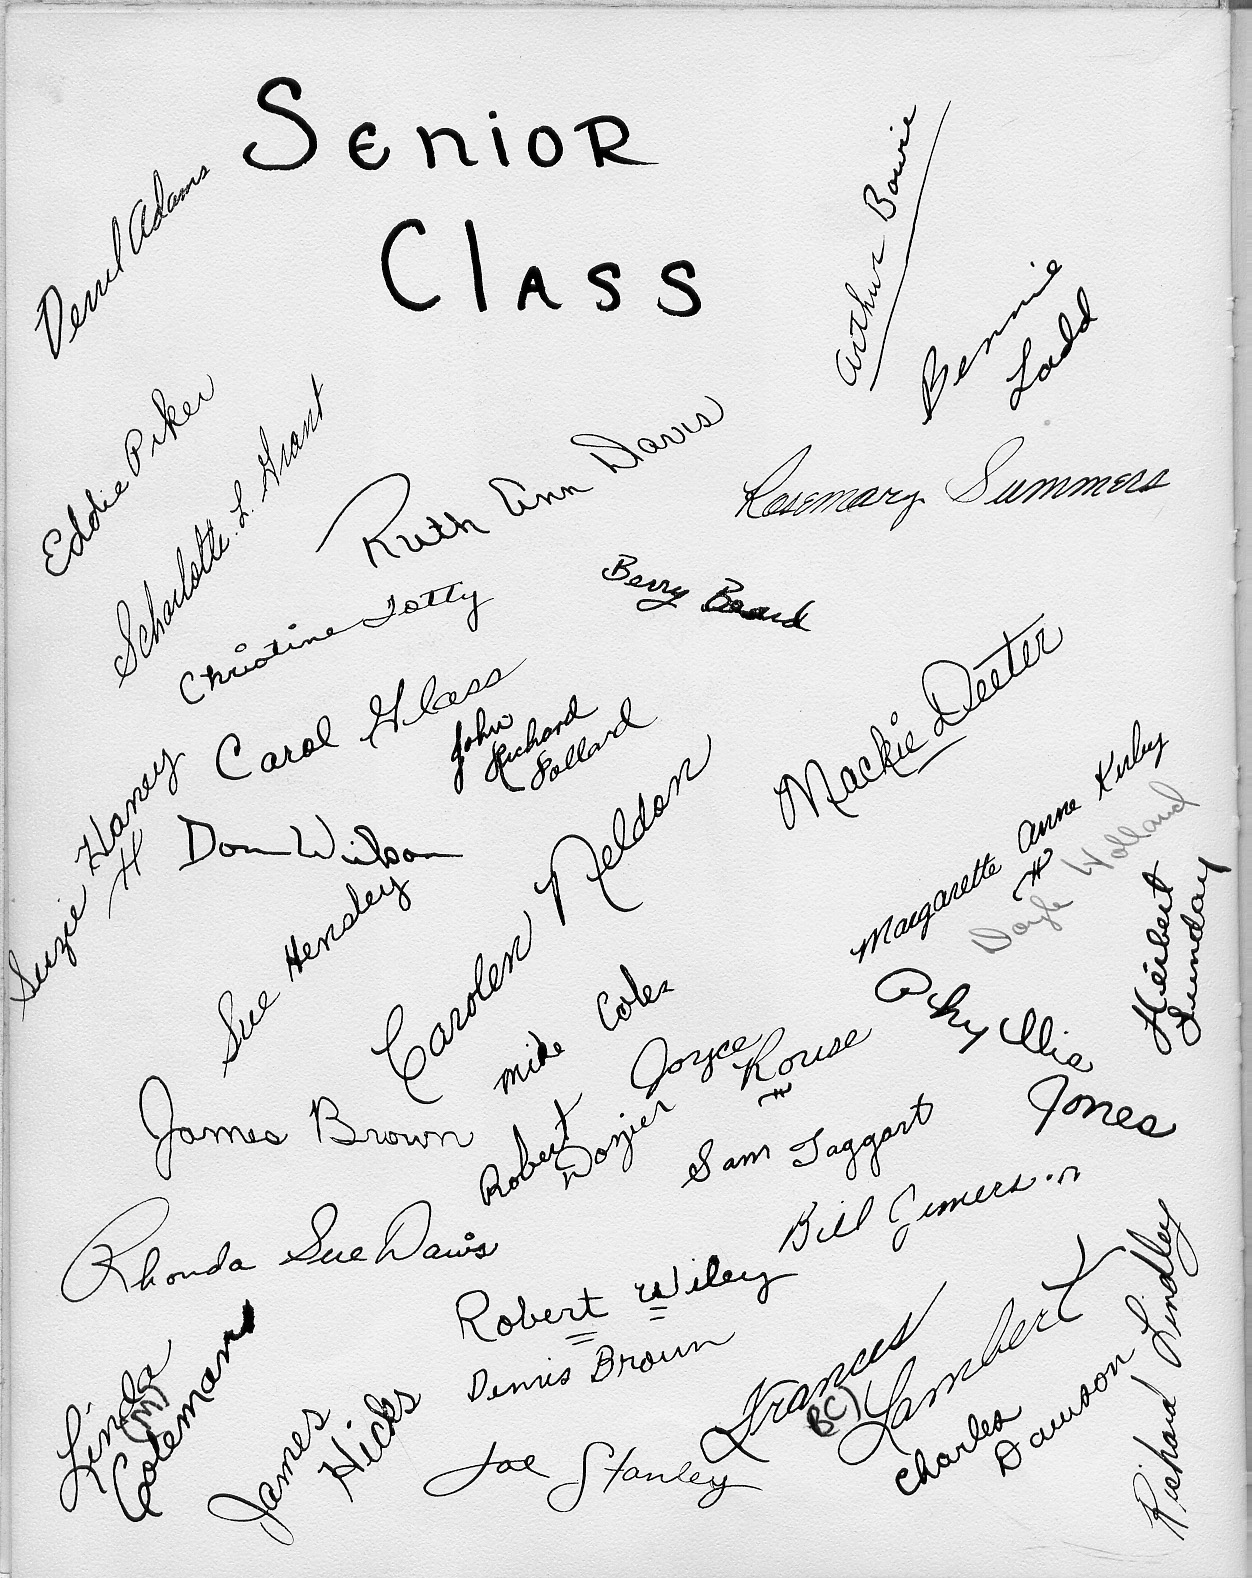 Senior
Class
Derril Adams
Arthur Bowie
Bennie
Ladd
Eddie Piker
Scharlotte L. Grant
Ruth Ann Davis
Rosemary Summers
Christine Totty
Berry Beard
Carol Glass
John
Richard
Pollard
Mackie Deeter
Suzie Haney
H
Don Wilson
Sue Hensley
Carolen Neldon
Margarette Anne Kirby
Doyle Holland
Herbert
Lunday
Mike Coles
Joyce
Rouse
Jones
James Brown
Robert
Dozier
Sam Taggart
Bill Jimerson
Rhonda Sue Davis
Robert Wiley
Dennis Brown
Linda
(M)
Coleman
James
Hicks
Joe Stanley
Frances
(BC)
Lambert
Charles
Dawson
Richard Lindley